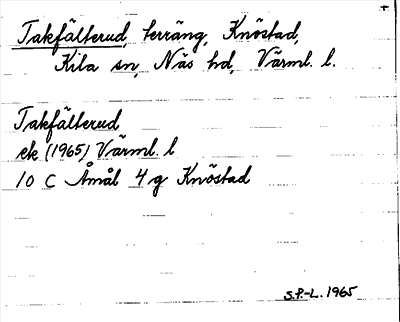 +
Takfälterud, terräng, Knöstad,
Kila sn, Näs hd, Värml. l.
Takfälterud
ek (1965) Värml. l
10 C Åmål 4 g Knöstad
S.P.-L. 1965